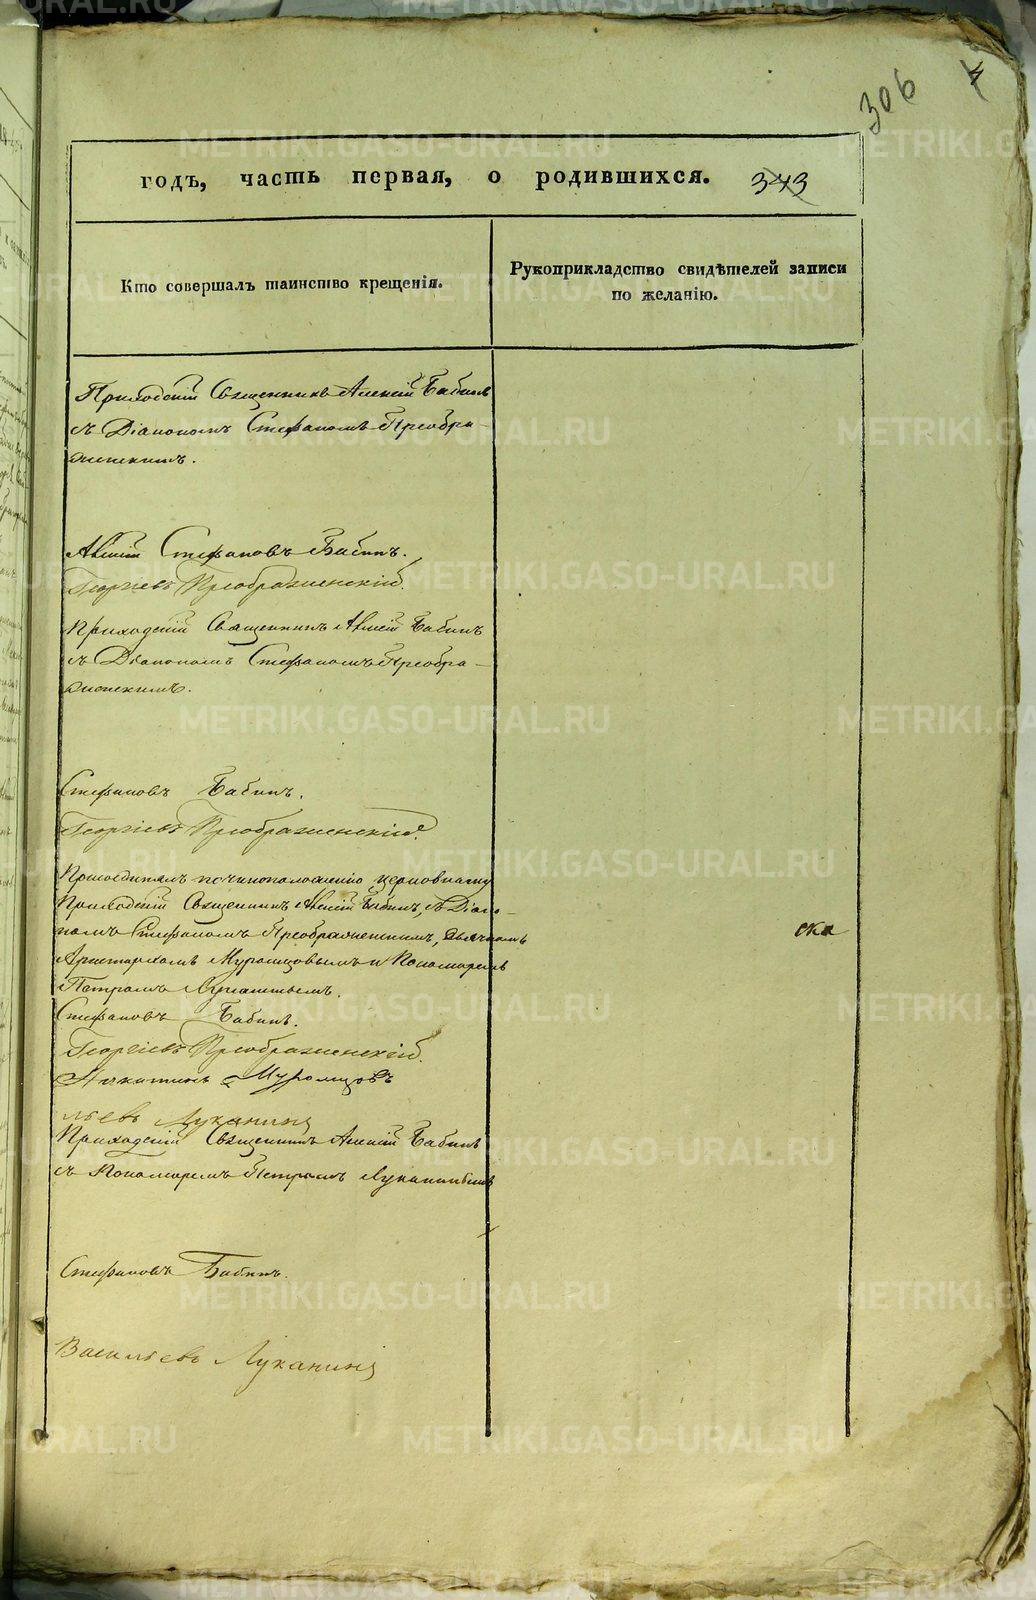 306
4
годъ, часть первая, о родившихся. 343
Кто совершалъ таинство крещенія.
Рукоприкладство свидѣтелей записи
по желанію.
Приходскій Священникъ Алексій Бабинъ
съ Діакономъ Стефаномъ Преобра-
женскимъ.
Алексій Стефановъ Бабинъ.
Георгіевъ Преображенскій.
Приходскій Священникъ Алексій Бабинъ
съ Діакономъ Стефаномъ Преобра-
женскимъ.
Стефановъ Бабинъ.
Георгіевъ Преображенскій.
по чиноположенію церковному
Приходскій Священникъ Алексій Бабинъ, съ Діако-
номъ Стефаномъ Преображенскимъ, Дьячкомъ
Аристархомъ Муромцовымъ и Пономаремъ
Петромъ Лукантьемъ.
Стефановъ Бабинъ.
Георгіевъ Преображенскій.
Никитинъ Муромцовъ
льевъ Луканинъ
Приходскій Священникъ Алексій Бабинъ
съ Пономаремъ Петромъ Луканинымъ
Стефановъ Бабинъ.
Васильевъ Луканинъ
METRIKI.GASO-URAL.RU